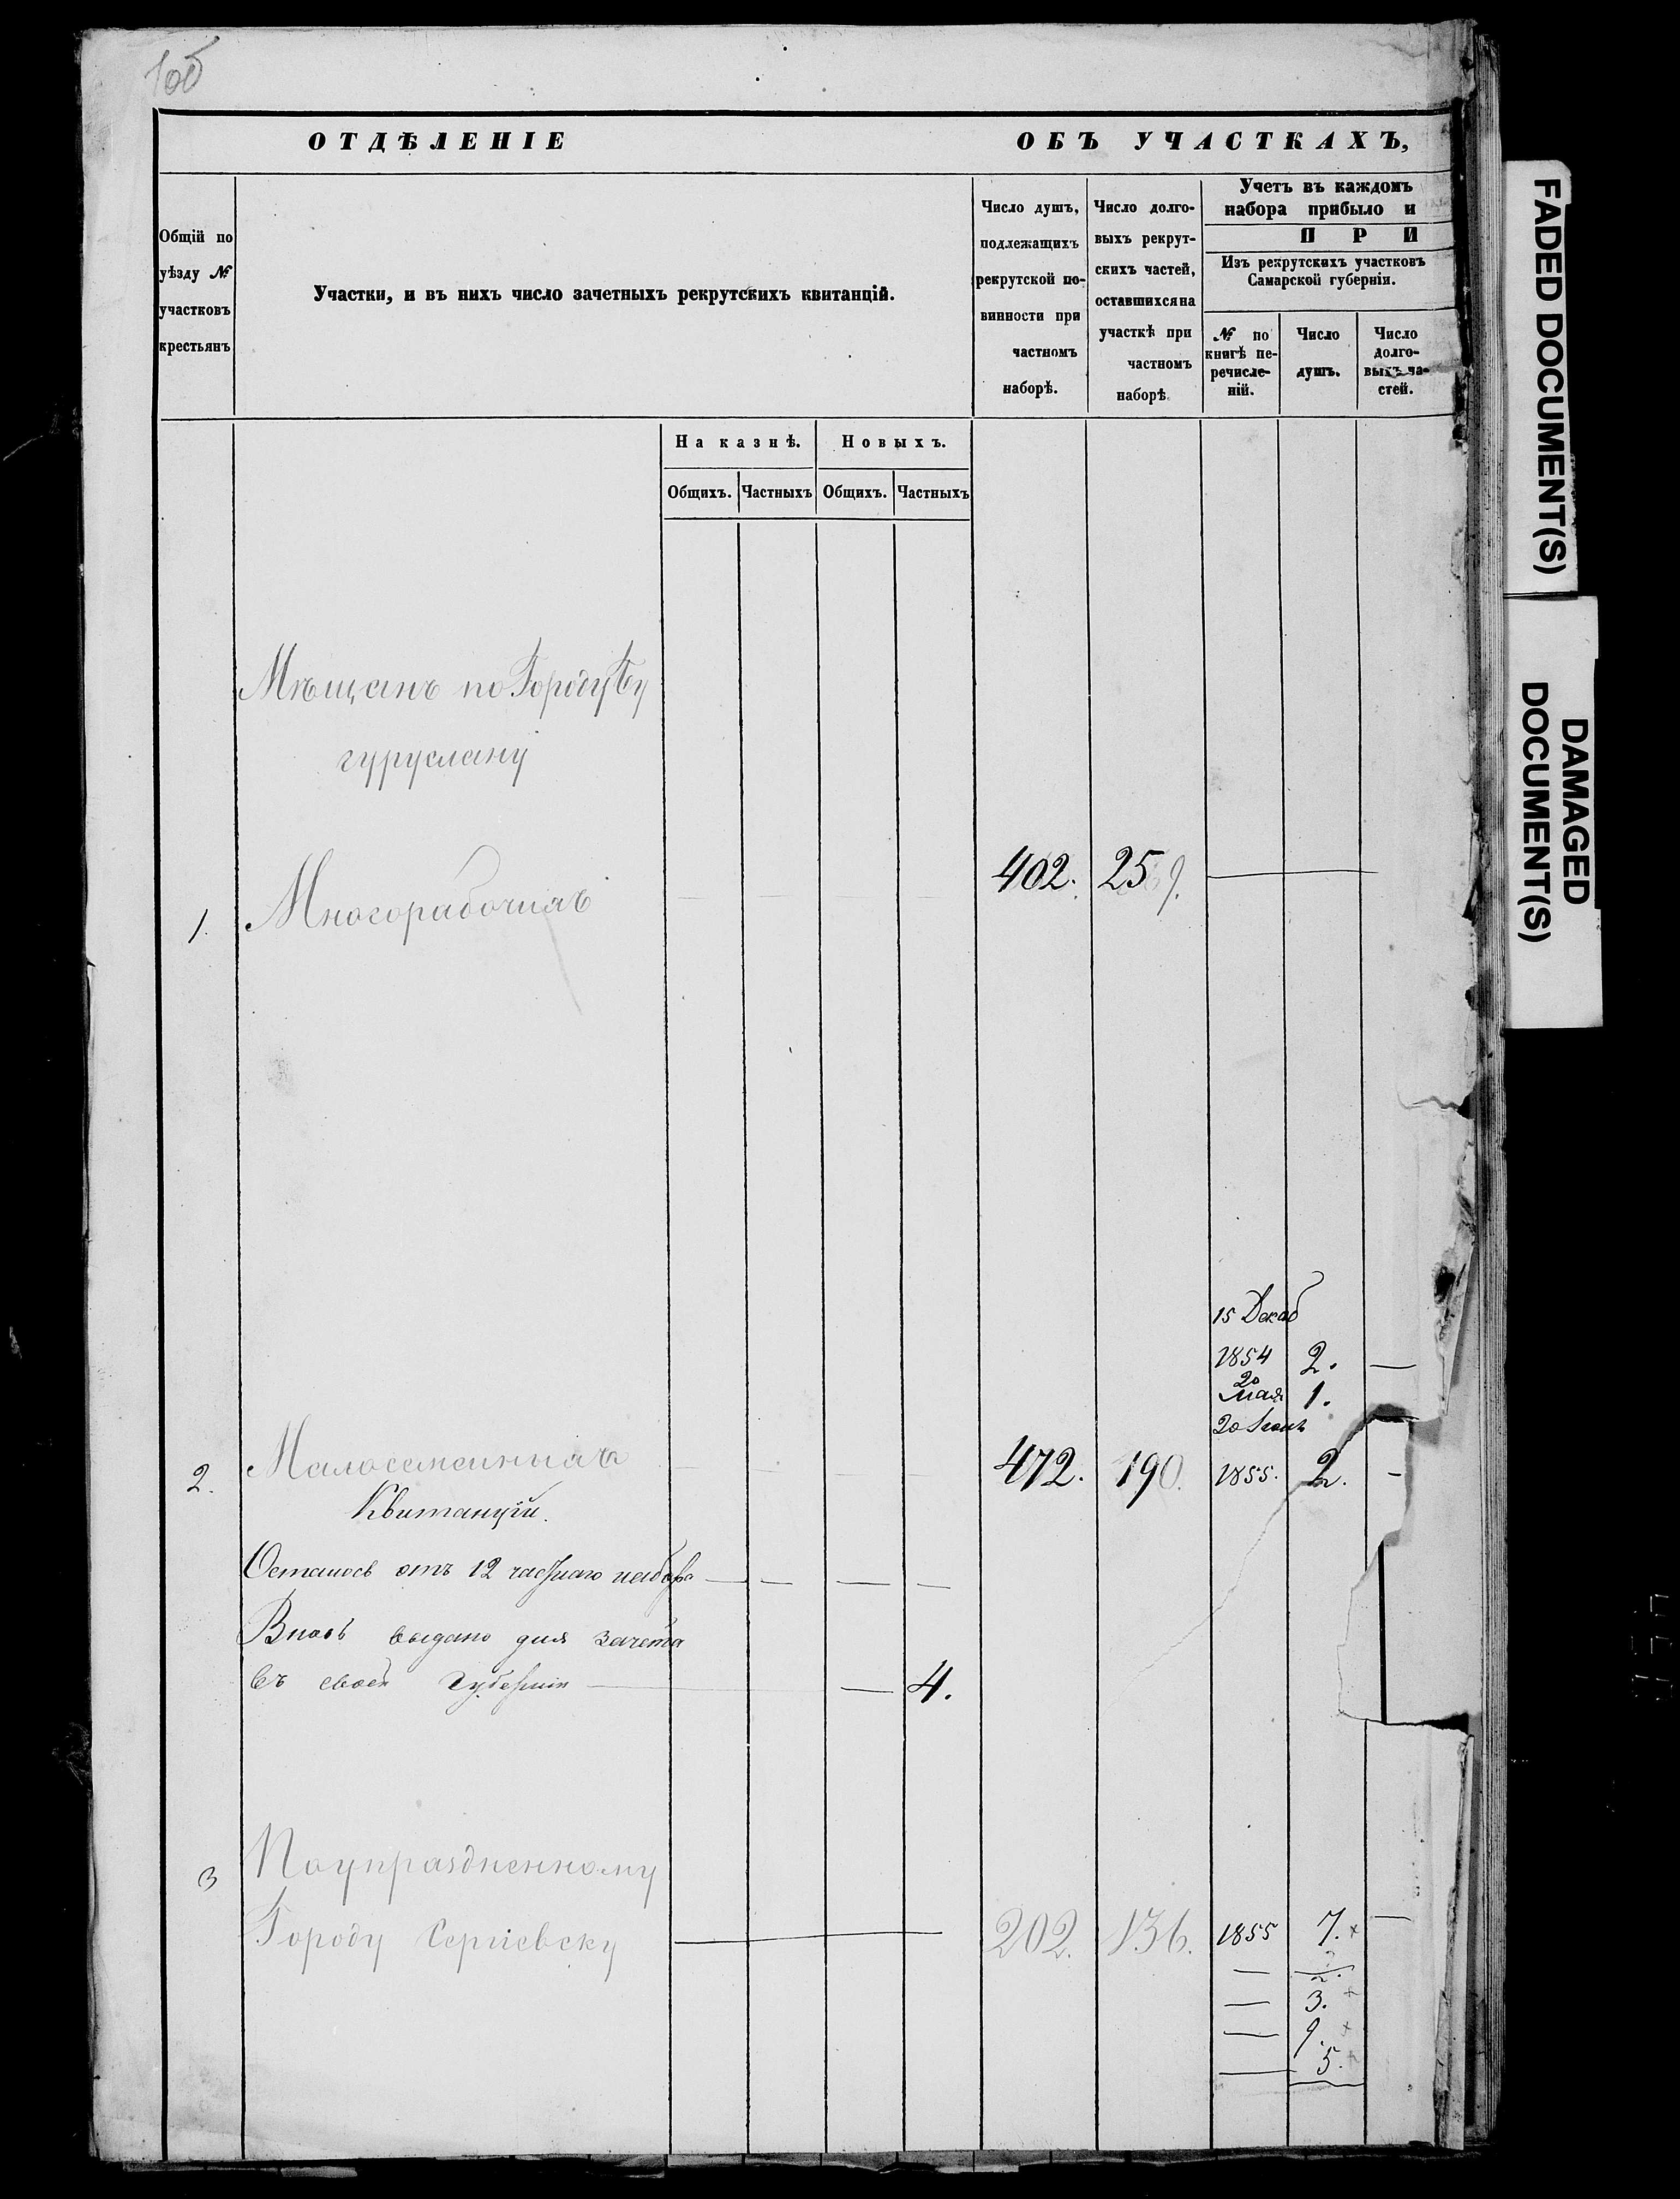 1об
ОТДѢЛЕНІЕ ОБЪ УЧАСТКАХЪ,
Общій по уѣзду № участковъ крестьянъ
Участки, и въ нихъ число зачетныхъ рекрутскихъ квитанцій.
Число душъ, подлежащихъ рекрутской по-винности при частномъ наборѣ.
Число долго-выхъ рекрут-скихъ частей, оставшихся на участкѣ при частномъ наборѣ
Учетъ въ каждомъ
набора прибыло и
П Р И
Изъ рекрутскихъ участковъ
Самарской губерніи.
№ по книгѣ пе-речисле-ній.
Число душъ.
Число долго-выхъ ча-стей.
На казнѣ. Новыхъ.
Общихъ. Частныхъ Общихъ. Частныхъ
Мѣщанъ по Городу Бу
гуруслану
1. Многорабочихъ — — — — 402. 259. —
15 Декаб
1854 2. —
20
Мая 1.
20 Іюнь
2. Малосемейныхъ — — — — 472. 190. 1855. 2. -
Квитанціи.
Осталось отъ 12 частнаго набора — — — —
Вновь выдано для зачета
въ своей Губерніи — — 4.
3 По упраздненному
Городу Сергіевску — 202. 136. 1855 7. × —
— 2.
— 3. +
— 9. +
— 5. +
FADED DOCUMENT(S)
DAMAGED
DOCUMENT(S)